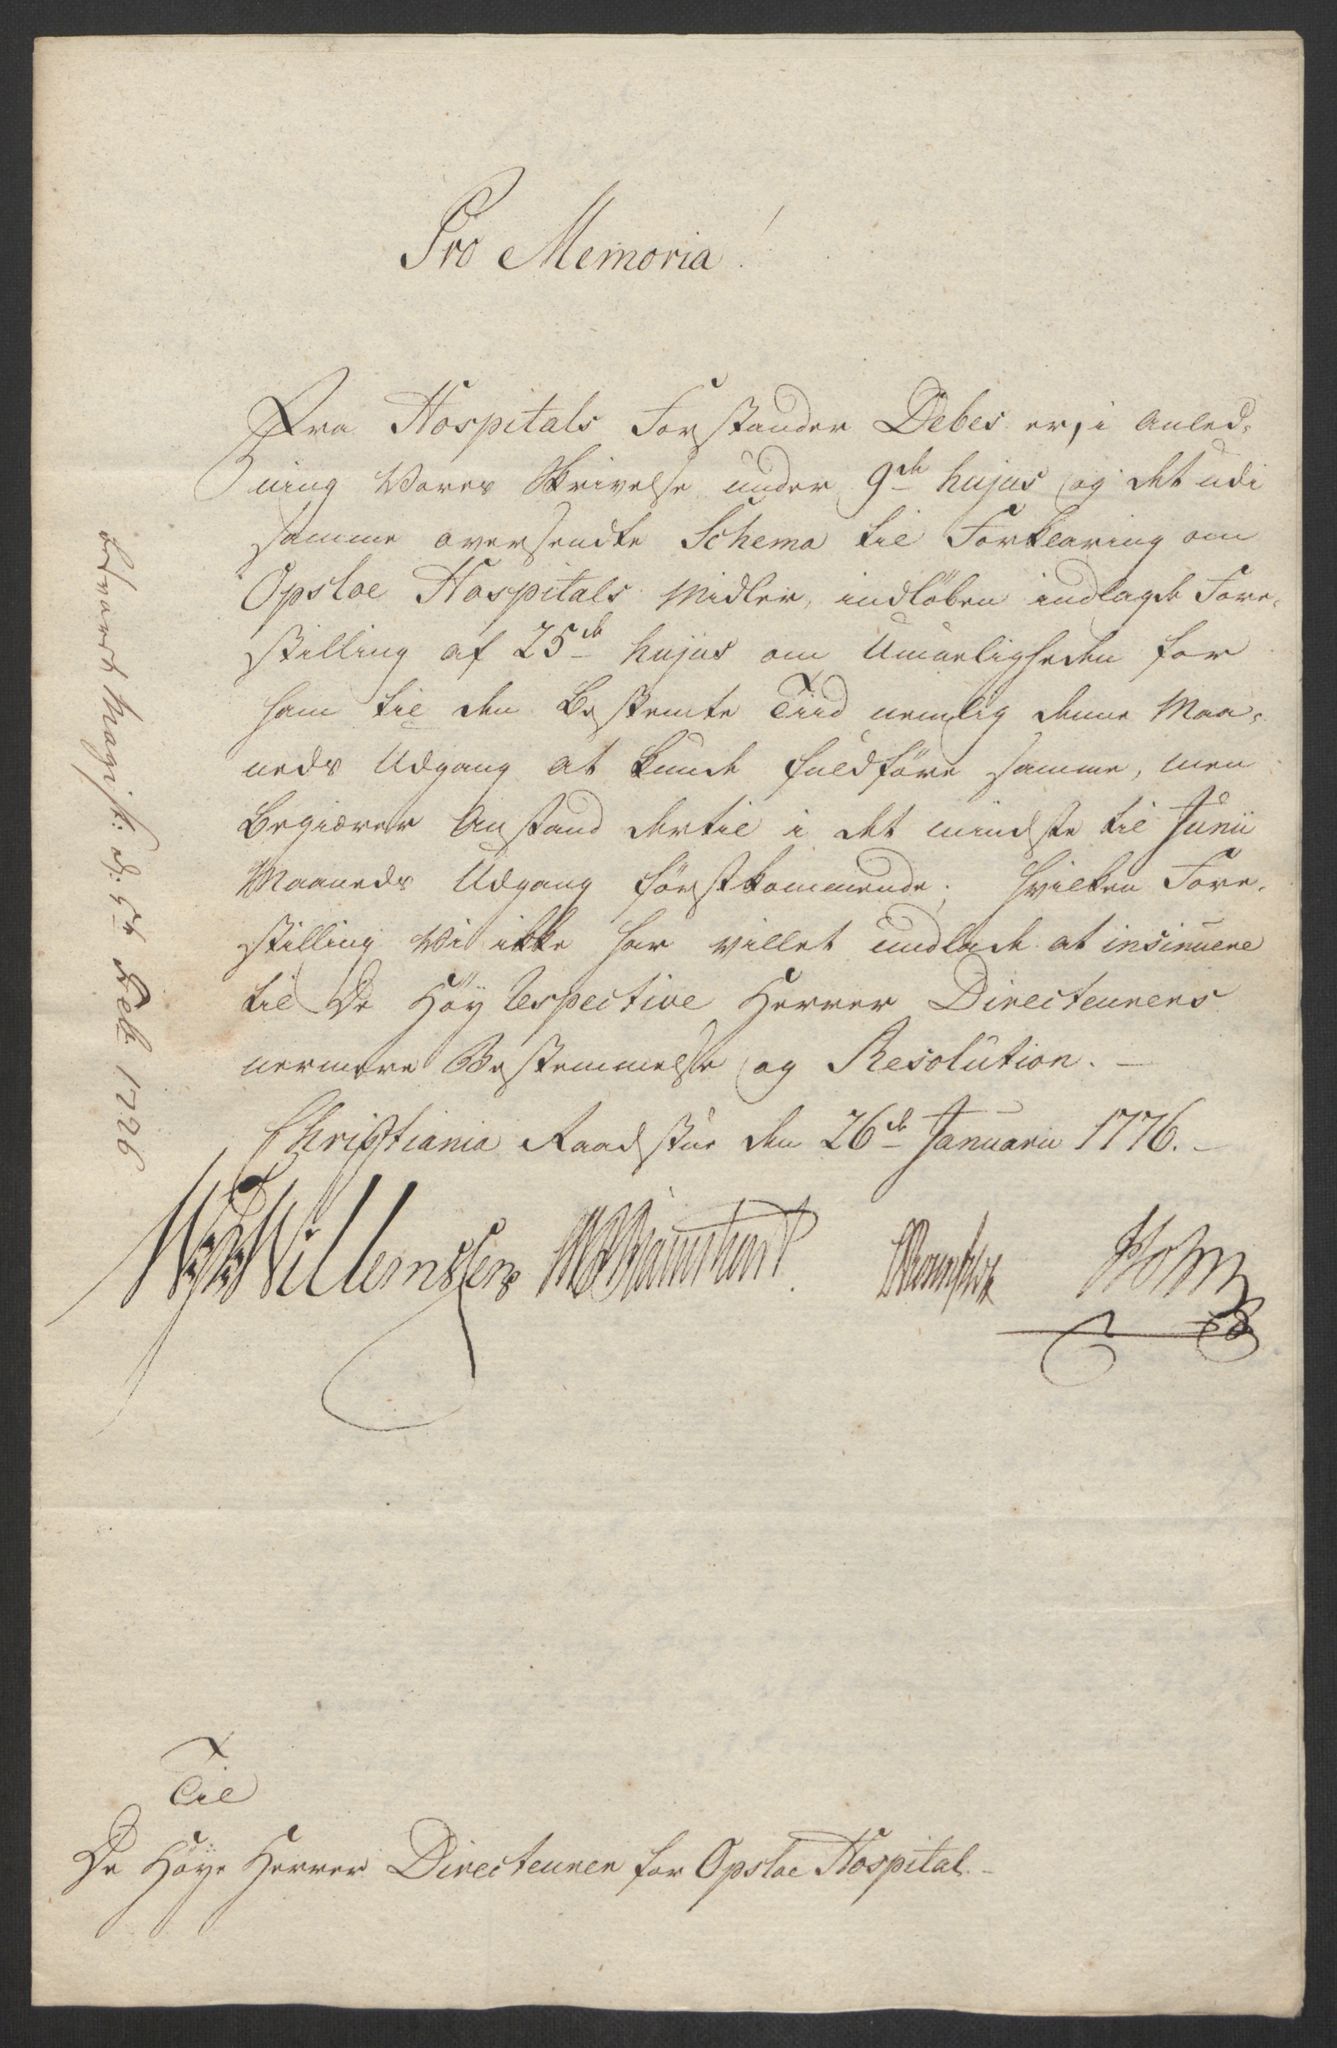 Pro Memoria!
Fra Hospitals Forstander Debes er, i Anled-
ning Vores Skrivelse under 9de hujus og det udi
samme oversendte Schema til Forklaring om
Opsloe Hospitals Midler, indløben indlagde Fore-
stilling af 25de hujus om Umueligheden for
ham til den Bestemte Tiid nemlig denne Maa-
neds Udgang at kunde fuldføre samme, men
Begiærer Anstand dertil i det mindste til Junii
Maaneds Udgang førstkommende; hvilken Fore-
stilling Vi ikke har villet undlade at insinuere
til De Høy Respective Herrer Directeurers
nermere Bestemmelse og Resolution. —
Christiania Raadstue den 26de Januarii 1776. —
Willemssen
Holm
Magist: d. Feb. 1776
Til
De Høye Herrer Directeurer for Opsloe Hospital. —